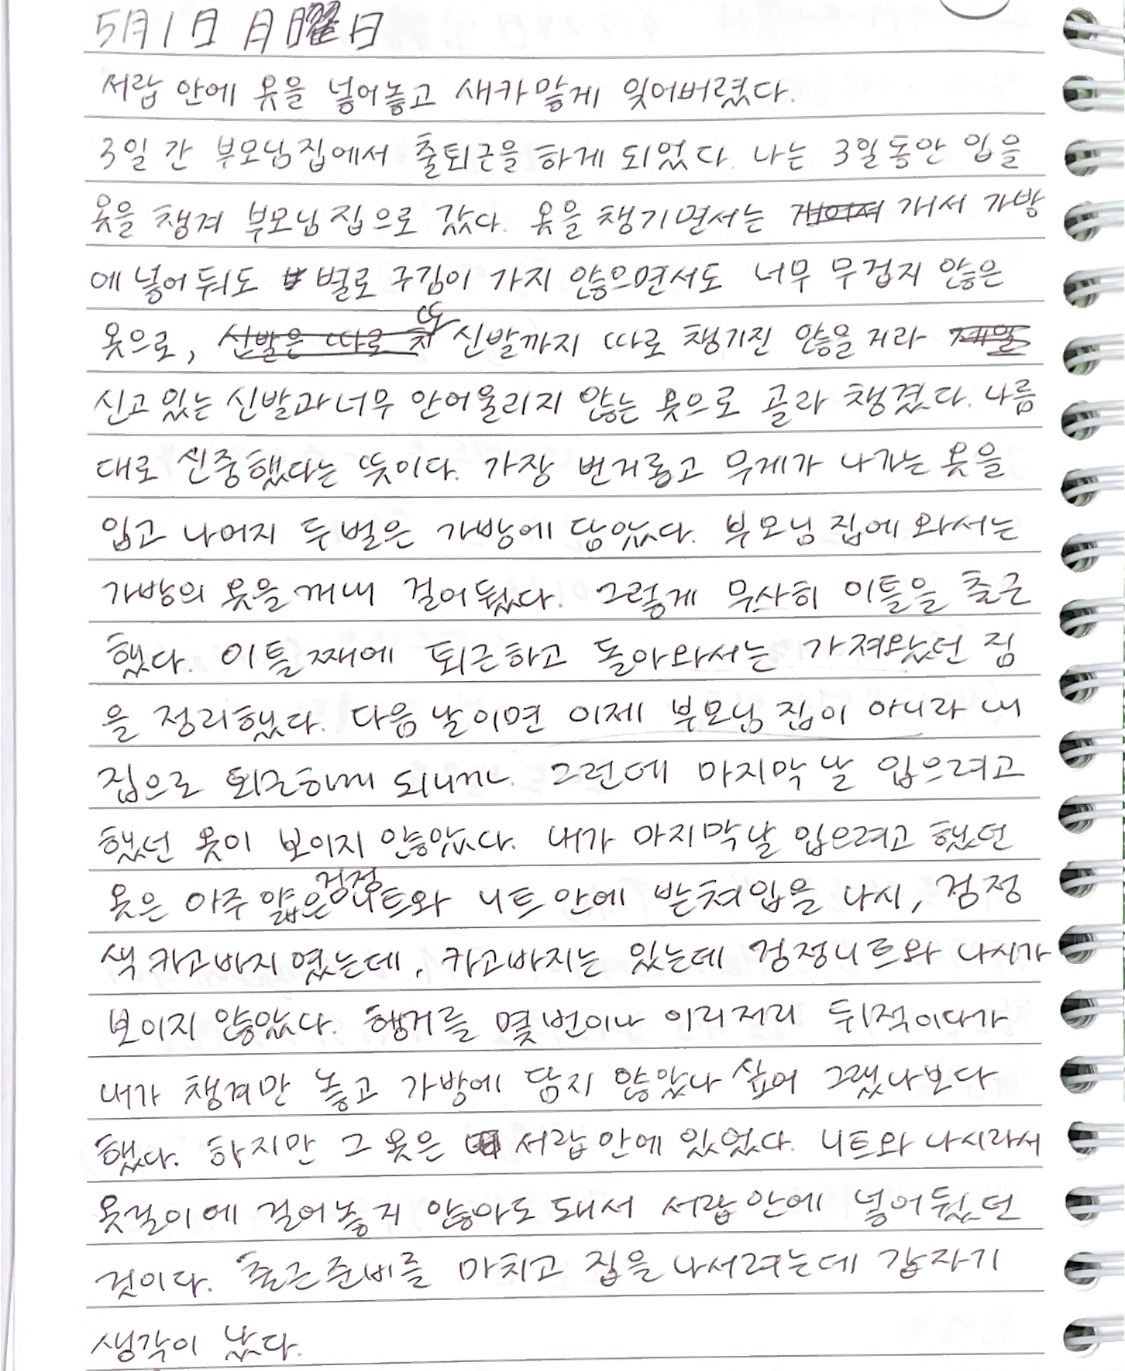 5月1日 月曜日
서랍 안에 옷을 넣어놓고 새카맣게 잊어버렸다.
3일 간 부모님집에서 출퇴근을 하게 되었다. 나는 3일동안 입을
옷을 챙겨 부모님 집으로 갔다. 옷을 챙기면서는 개서 가방
에 넣어 둬도 별로 구김이 가지 않으면서도 너무 무겁지 않은
옷으로, 또 신발까지 따로 챙기진 않을 거라
신고 있는 신발과 너무 안어울리지 않는 옷으로 골라 챙겼다. 나름
대로 신중했다는 뜻이다. 가장 번거롭고 무게가 나가는 옷을
입고 나머지 두 벌은 가방에 담았다. 부모님 집에 와서는
가방의 옷을 꺼내 걸어뒀다. 그렇게 무사히 이틀을 출근
했다. 이틀 째에 퇴근하고 돌아와서는 가져왔던 짐
을 정리했다. 다음 날이면 이제 부모님 집이 아니라 내
집으로 퇴근하게 되니까. 그런데 마지막 날 입으려고
했던 옷이 보이지 않았다. 내가 마지막날 입으려고 했던
옷은 아주 얇은 검정 니트와 니트 안에 받쳐입을 나시, 검정
색 카고바지였는데, 카고바지는 있는데 검정니트와 나시가
보이지 않았다. 행거를 몇 번이나 이리저리 뒤적이다가
내가 챙겨만 놓고 가방에 담지 않았나 싶어 그랬나보다
했다. 하지만 그 옷은 서랍 안에 있었다. 니트와 나시라서
옷걸이에 걸어놓지 않아도 돼서 서랍 안에 넣어뒀던
것이다. 출근준비를 마치고 집을 나서려는데 갑자기
생각이 났다.